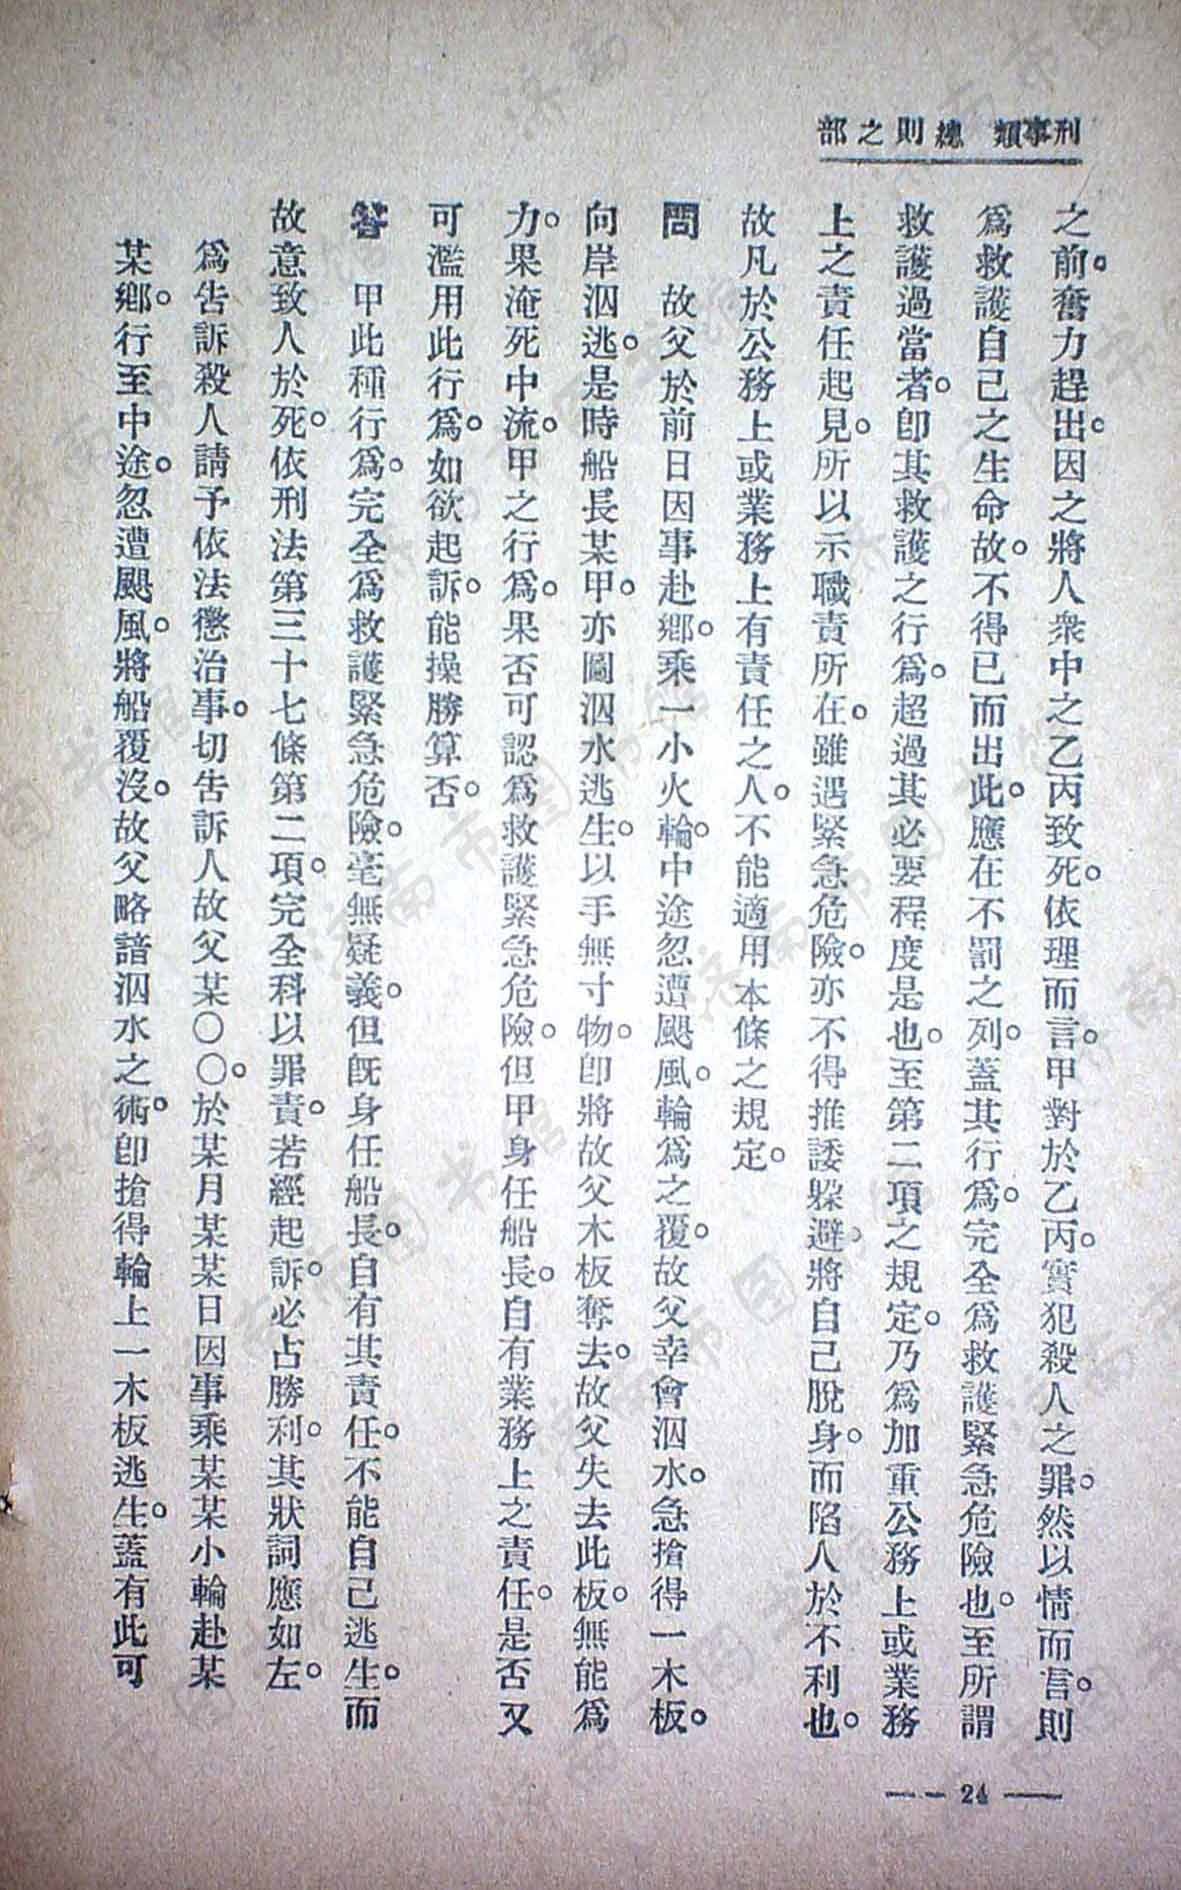 刑事類 總則之部
之前。奮力趕出。因之將人衆中之乙丙致死。依理而言。甲對於乙丙。實犯殺人之罪。然以情而言。則
爲救護自己之生命故。不得已而出此。應在不罰之列。蓋其行爲。完全爲救護緊急危險也。至所謂
救護過當者。卽其救護之行爲。超過其必要程度是也。至第二項之規定。乃爲加重公務上或業務
上之責任起見。所以示職責所在。雖遇緊急危險。亦不得推諉躱避。將自己脫身。而陷人於不利也。
故凡於公務上或業務上有責任之人。不能適用本條之規定。
問　故父於前日因事赴鄉。乘一小火輪。中途忽遭颶風。輪爲之覆。故父幸會泅水。急搶得一木板。
向岸泅逃。是時船長某甲。亦圖泅水逃生。以手無寸物。卽將故父木板奪去。故父失去此板。無能爲
力。果淹死中流。甲之行爲。果否可認爲救護緊急危險。但甲身任船長。自有業務上之責任。是否又
可濫用此行爲。如欲起訴。能操勝算否。
答　甲此種行爲。完全爲救護緊急危險。毫無疑義。但旣身任船長。自有其責任。不能自己逃生。而
故意致人於死。依刑法第三十七條第二項。完全科以罪責。若經起訴。必占勝利。其狀詞應如左。
爲告訴殺人請予依法懲治事。切告訴人故父某〇〇。於某月某某日因事乘某某小輪赴某
某鄉。行至中途。忽遭颶風。將船覆沒。故父略諳泅水之術。卽搶得輪上一木板逃生。蓋有此可
— 24 —
济南市图书馆